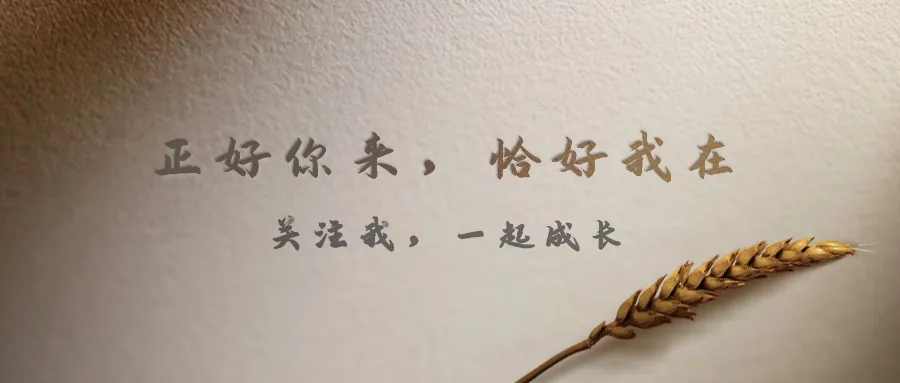 正好你来，恰好我在
关注我，一起成长